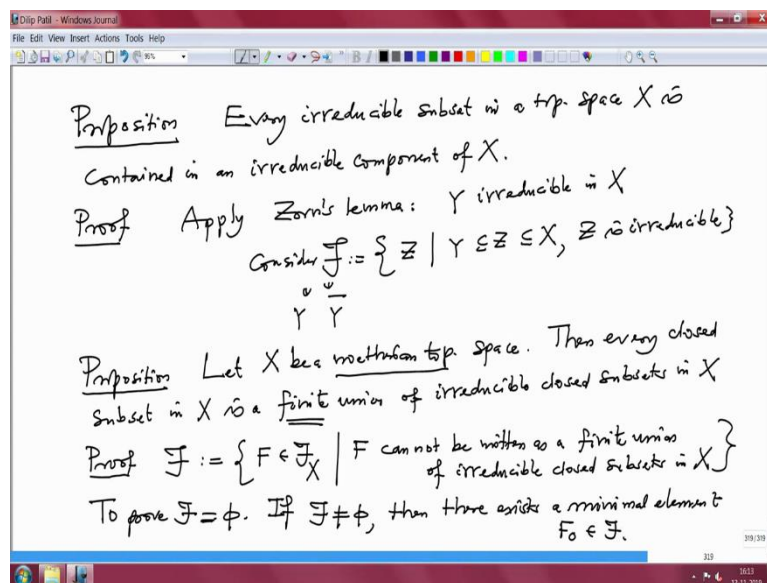 Dilip Patil - Windows Journal
File Edit View Insert Actions Tools Help
Proposition Every irreducible subset in a top. space X is
contained in an irreducible component of X.
Proof Apply Zorn's lemma: Y irreducible in X
Consider ℱ := { Z | Y ⊆ Z ⊆ X, Z is irreducible}
Y Y̅
Proposition Let X be a noetherian top. space. Then every closed
subset in X is a finite union of irreducible closed subsets in X
Proof ℱ := { F ∈ ℱ_X | F cannot be written as a finite union
of irreducible closed subsets in X }
To prove ℱ = ϕ. If ℱ ≠ ϕ, then there exists a minimal element
F₀ ∈ ℱ.
319/319
319
16:13